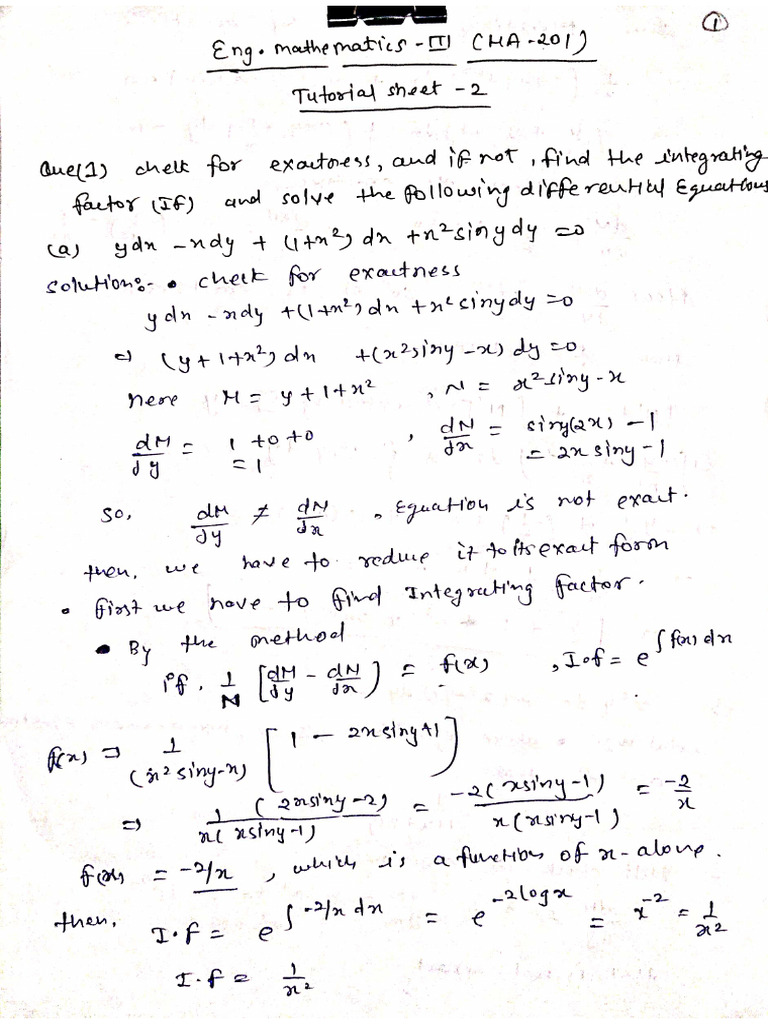 ①
Eng. mathematics - III (MA-201)
Tutorial sheet - 2
Que(1) check for exactness, and if not, find the integrating
factor (If) and solve the following differential Equations
(a) ydx - xdy + (1+x²) dx + x² siny dy = 0
solution:- • check for exactness
ydx - xdy + (1+x²) dx + x² siny dy = 0
⇒ (y + 1 + x²) dx + (x² siny - x) dy = 0
here M = y + 1 + x² , N = x² siny - x
dM/dy = 1 + 0 + 0 , dN/dx = siny(2x) - 1
= 1 = 2x siny - 1
So, dM/dy ≠ dN/dx , Equation is not exact.
then, we have to reduce it to its exact form
• first we have to find Integrating factor.
• By the method
if, 1/N [dM/dy - dN/dx) = f(x) , I.f = e^∫f(x) dx
f(x) ⇒ 1/(x² siny - x) [1 - 2x siny + 1]
⇒ 1 (2x siny - 2)/x(x siny - 1) = -2(x siny - 1)/x(x siny - 1) = -2/x
f(x) = -2/x , which is a function of x-alone.
then, I.f = e^∫-2/x dx = e^-2logx = x^-2 = 1/x²
I.f = 1/x²